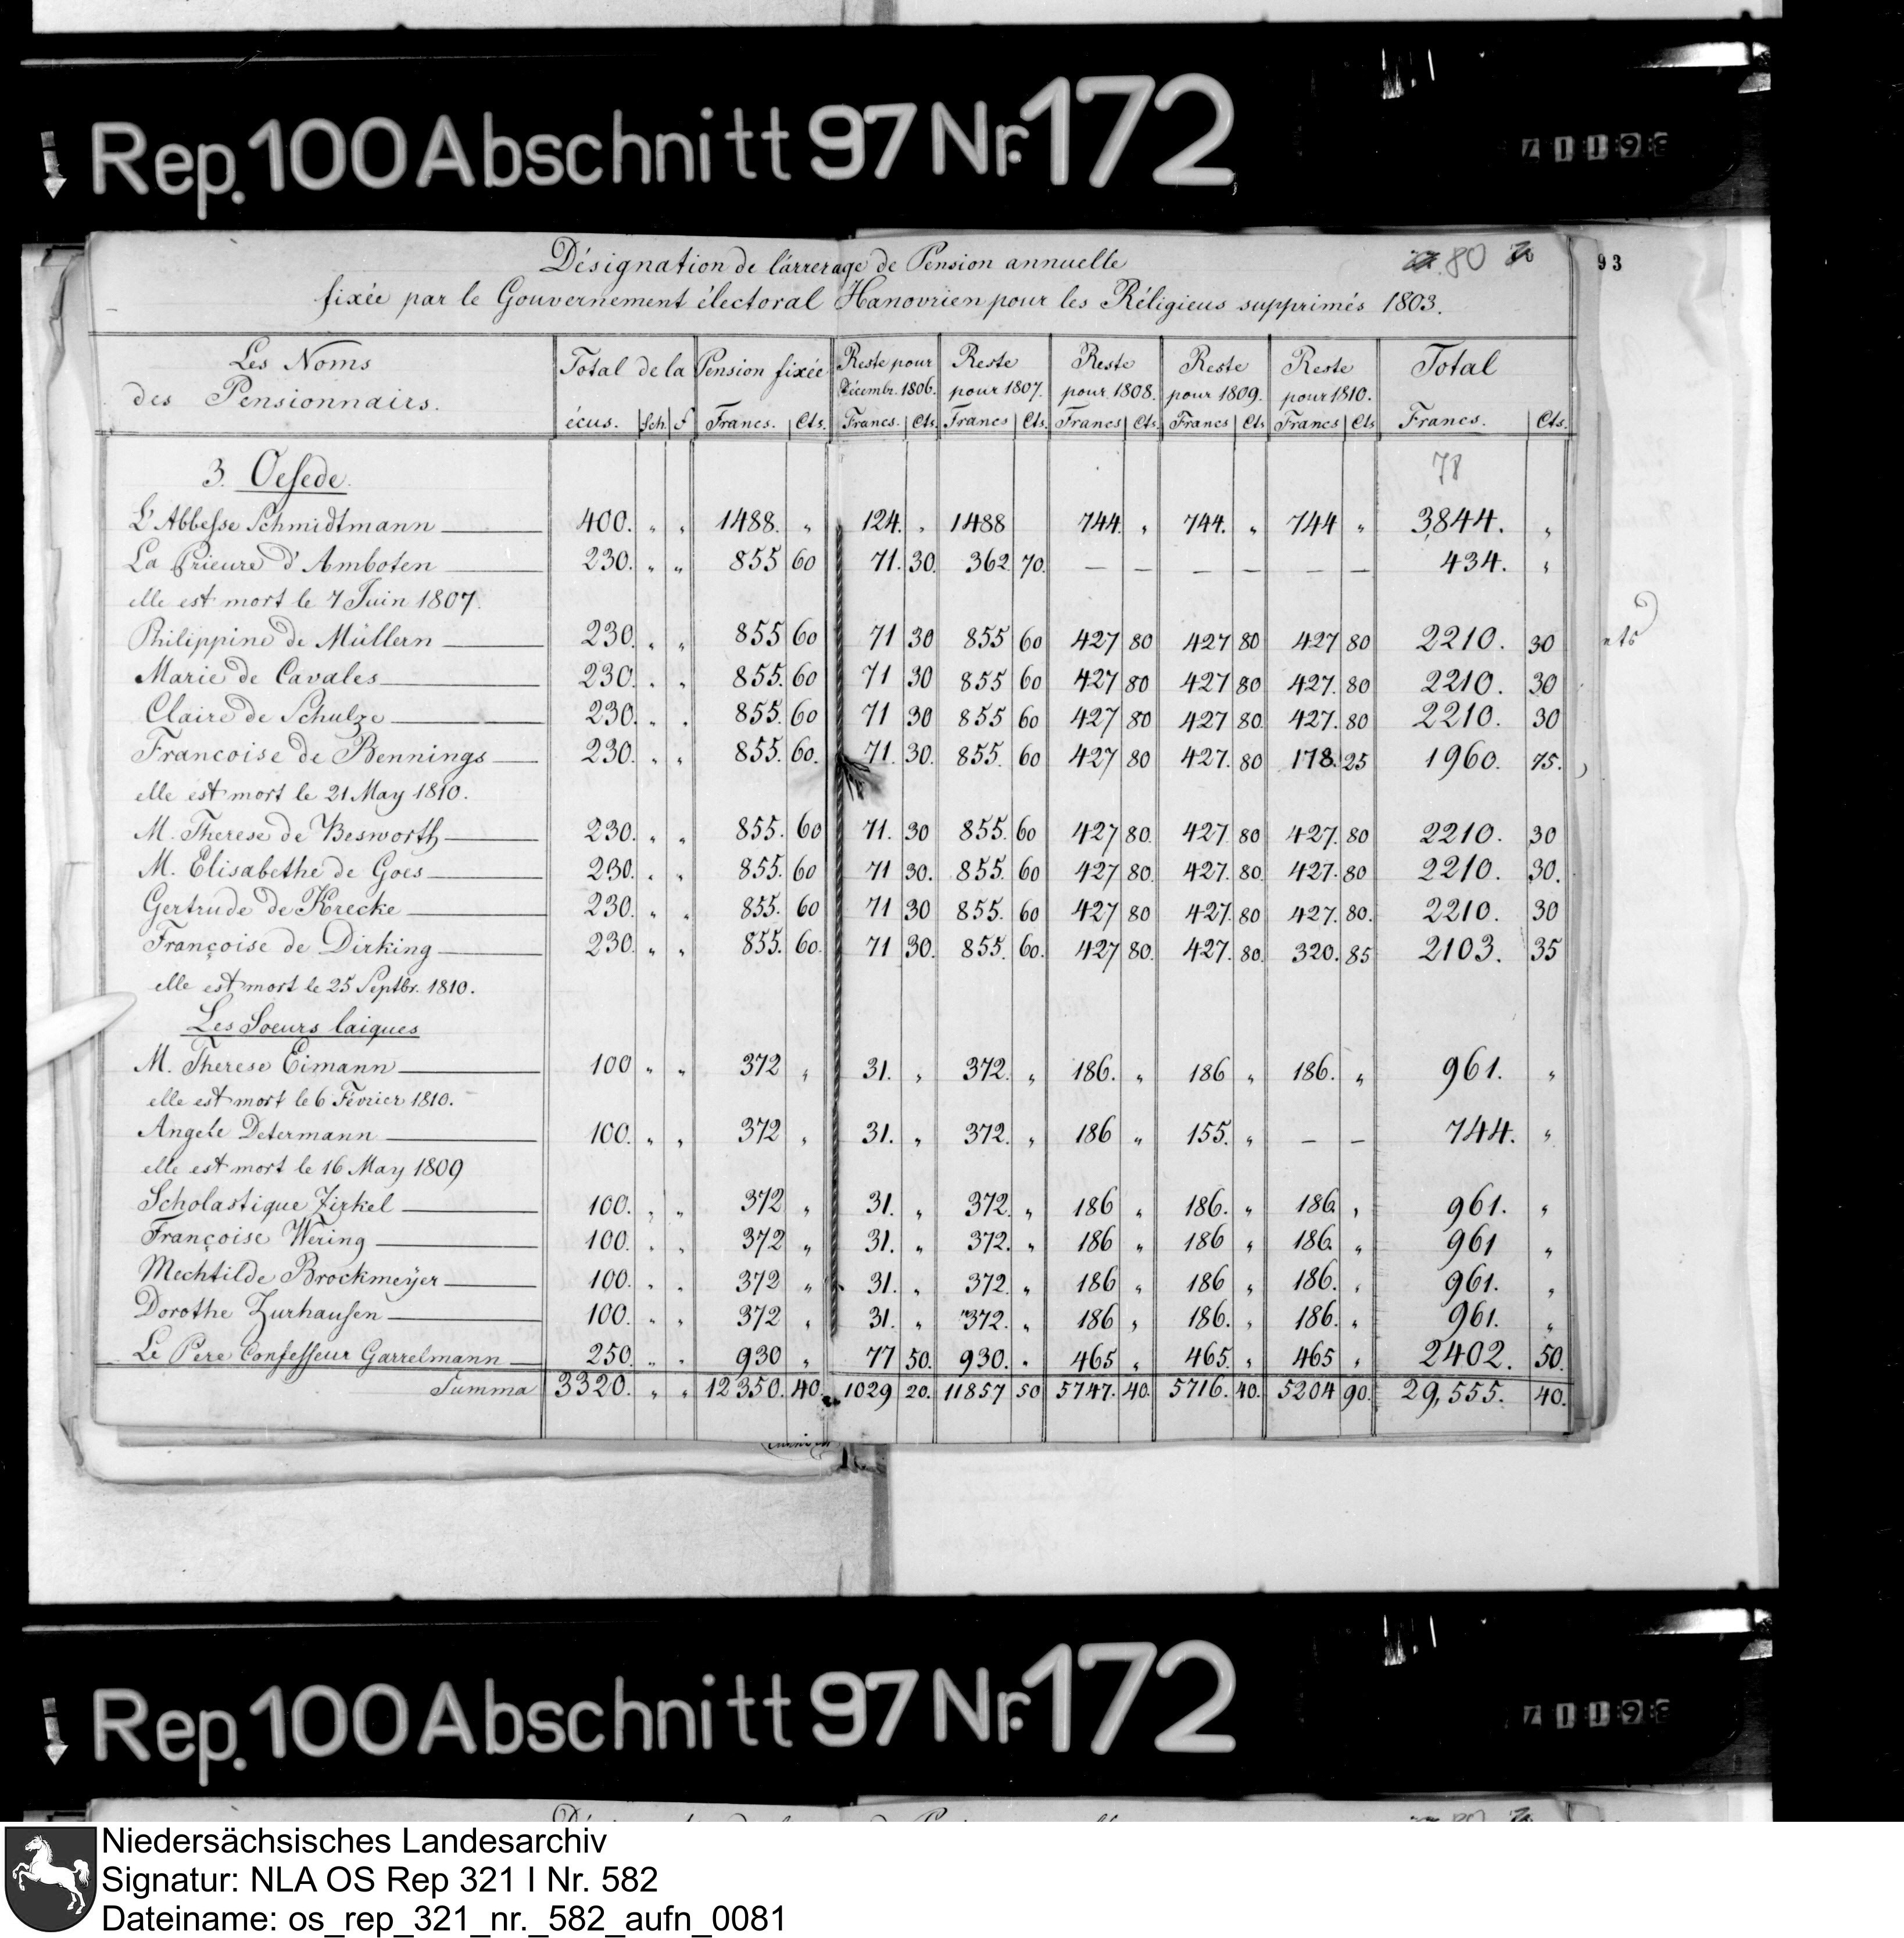 Rep. 100 Abschnitt 97 Nr. 172
Désignation de l'árrerage de Pension annuelle
80
93
fixée par le Gouvernement électoral Hanovrien pour les Réligieus supprimés 1803.
Les Noms des Pensionnairs. | Total de la Pension fixée | Reste pour Décembr. 1806. | Reste pour 1807. | Reste pour 1808. | Reste pour 1809. | Reste pour 1810. | Total
écus. | Sch. | ₰ | Francs. | Cts. | Francs. | Cts. | Francs | Cts. | Francs | Cts. | Francs | Cts | Francs | Cts | Francs. | Cts.
3. Oesede.
78
L'Abbesse Schmidtmann — 400. „ „ 1488. „ 124. „ 1488 744. „ 744. „ 744 „ 3844. „
La Prieure d'Amboten — 230. „ „ 855 60 71. 30. 362 70. — — — — — — 434. „
elle est mort le 7 Juin 1807.
Philippine de Müllern — 230. „ „ 855 60 71 30 855 60 427 80 427 80 427 80 2210. 30
Marie de Cavales — 230. „ „ 855. 60 71 30 855 60 427 80 427 80 427. 80 2210. 30
Claire de Schulze — 230. „ „ 855. 60 71 30 855 60 427 80 427 80. 427. 80 2210. 30
Francoise de Bennings — 230. „ „ 855. 60. 71. 30. 855. 60 427 80 427. 80 178. 25 1960. 75.
elle est mort le 21 May 1810.
M. Therese de Besworth — 230. „ „ 855. 60 71. 30 855. 60 427 80. 427. 80 427. 80 2210. 30
M. Elisabethe de Goes — 230. „ „ 855. 60 71 30. 855. 60 427 80. 427. 80. 427. 80 2210. 30.
Gertrude de Krecke — 230. „ „ 855. 60 71 30 855. 60 427 80 427. 80 427. 80. 2210. 30
Françoise de Dirking — 230. „ „ 855. 60. 71 30. 855. 60. 427 80. 427. 80. 320. 85 2103. 35
elle est mort le 25 Septbr. 1810.
Les Soeurs laiques
M. Therese Eimann — 100 „ „ 372 „ 31. „ 372. „ 186. „ 186 „ 186. „ 961. „
elle est mort le 6 Février 1810.
Angele Determann — 100. „ „ 372 „ 31. „ 372. „ 186 „ 155. „ — — 744. „
elle est mort le 16 May 1809
Scholastique Zirkel — 100. „ „ 372 „ 31. „ 372. „ 186 „ 186. „ 186. „ 961. „
Françoise Wering — 100. „ „ 372 „ 31. „ 372. „ 186 „ 186 „ 186. „ 961 „
Mechtilde Brockmeÿer — 100. „ „ 372 „ 31. „ 372. „ 186 „ 186 „ 186. „ 961. „
Dorothe Zurhausen — 100. „ „ 372 „ 31. „ 372. „ 186 „ 186. „ 186. „ 961. „
Le Pere Confesseur Garrelmann — 250. „ „ 930 „ 77 50. 930. „ 465 „ 465. „ 465 „ 2402. 50.
Summa 3320. „ „ 12350. 40. 1029 20. 11857 50 5747. 40. 5716. 40. 5204 90. 29,555. 40.
Rep. 100 Abschnitt 97 Nr. 172
Niedersächsisches Landesarchiv
Signatur: NLA OS Rep 321 I Nr. 582
Dateiname: os_rep_321_nr._582_aufn_0081